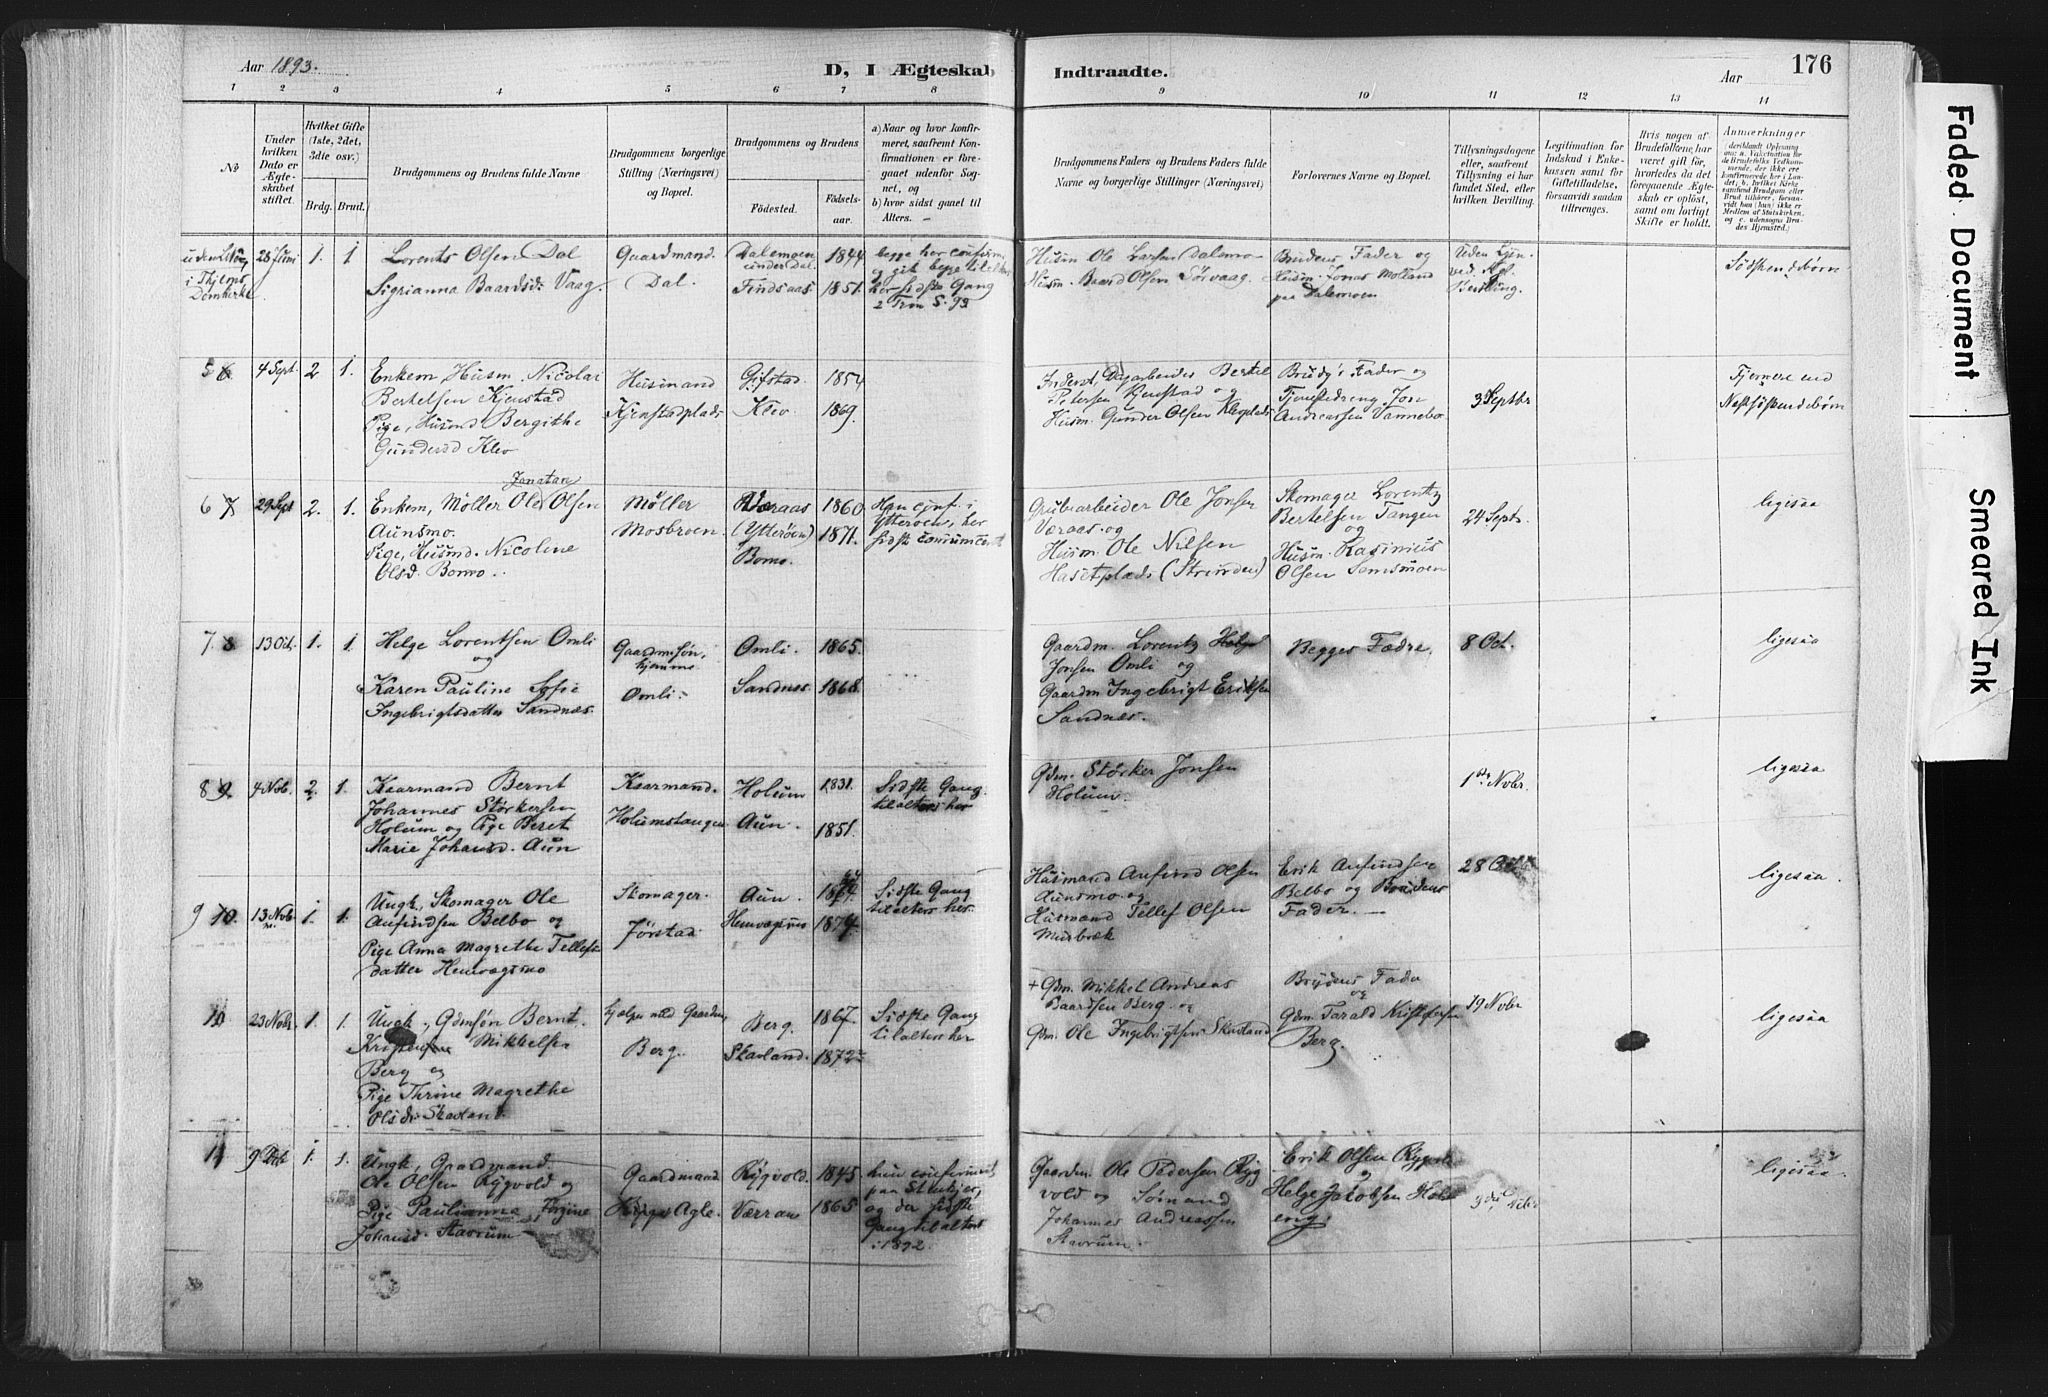 Aar 1893.
D, I Ægteskab
Indtraadte.
Aar
176
1 2 3 4 5 6 7 8 9 10 11 12 13 14
No
Under hvilken Dato er Ægteskabet stiftet.
Hvilket Gifte (1ste, 2det, 3die osv.)
Brdg. Brud.
Brudgommens og Brudens fulde Navne
Brudgommens borgerlige Stilling (Næringsvei) og Bopæl.
Brudgommens og Brudens
Födested.
Födselsaar.
a) Naar og hvor konfirmeret, saafremt Konfirmationen er foregaaet udenfor Sognet, og
b) hvor sidst gaaet til Alters. —
Brudgommens Faders og Brudens Faders fulde Navne og borgerlige Stillinger (Næringsvei)
Forlovernes Navne og Bopæl.
Tillysningsdagene eller, saafremt Tillysning ei har fundet Sted, efter hvilken Bevilling.
Legitimation for Indskud i Enkekassen samt for Giftetilladelse, forsaavidt saadan tiltrænges.
Hvis nogen af Brudefolkene har været gift før, hvorledes da det foregaaende Ægteskab er oplöst, samt om lovligt Skifte er holdt.
Anmærkninger
Faded Document
Smeared Ink
28 Juni 1. 1
Lorents Olsen Dal
Sigrianna Baardsd. Vaag.
Gaardmand.
Dal.
Dalemoen
under Dal.
Findsaas
1844
1851.
begge her confirm.
og gik begge til alters
her sidste Gang
2 Trin S. 93
Husm Ole Larsen Dalemo
Husm. Baard Olsen Sörvaag.
Brudens Fader og
Husm. Jonas Molland
paa Dalemoen
Uden
ved Kgl.
Bevilling.
Södskendebörn
5 4 Sept. 2 1.
Enkem, Husm. Nicolai
Bertelsen Kjenstad
Pige, Husmd Bergithe
Gundersd Klev
Husmand
Kjenstadplads
Gifstad
Klev.
1854
1869.
Inderst, Dagarbeider Bertel
Petersen Kjenstad og
Husm. Gunder Olsen Klevplads
Brudg's Fader og
Tjenestedreng Jon
Andreassen Vannebo.
3 Septbr
Fjernere end
Næstsöskendebörn
6 7 29 Sept 2. 1.
Jonatan
Enkem, Møller Ole Olsen
Aunsmo.
Pige, Husmd. Nicoline
Olsd. Bomo.
Møller
Mosbroen
Væraas
(Ytterøen)
Bomo.
1860
1871.
Han conf. i
Ytteröen, her
sidst communicert
Grubearbeider Ole Jonsen
Væraas og
Husm. Ole Nilsen
Hasetplads (Strinden)
Skomager Lorentz
Bertelsen Tangen
og
Husm. Kasinius
Olsen Semsmoen
24 Sept.
ligesaa
7. 8 13 Oct. 1. 1.
Helge Lorentsen Omli
og
Karen Pauline Sofie
Ingebrigtsdatter Sandnæs.
Gaardm.søn,
hjemme
Omli.
Omli.
Sandnes.
1865.
1868.
Gaardm. Lorentz Helge
Jonsen Omli og
Gaardm Ingebrigt Eriksen
Sandnæs.
Begges Fædre.
8 Oct.
ligesaa
8 9. 4 Nob. 2. 1.
Kaarmand Bernt
Johannes Størkersen
Holum og Pige Beret
Marie Johansd. Aun
Kaarmand.
Holumstangen
Holum
Aun.
1831.
1851.
Sidste Gang
til alters her
Gdm. Størker Jonsen
Holum.
1ste Nobr.
ligesaa
9 10. 13 Nob. 1. 1.
Ungk, Skomager Ole
Anfindsen Belbo og
Pige Anna Magrethe Tellefs
datter Hemvægsmo
Skomager.
Jørstad.
Aun.
Hemvægsmo
1874.
Sidste Gang
til alters her.
Husmand Anfind Olsen
Aunsmo og
Husmand Tellef Olsen
Murbæk
Erik Anfindsen
Belbo og Brudens
Fader. —
28 Oct.
ligesaa.
10 23 Nobr. 1. 1.
Ungk., Gdmsøn Bernt
Mikkelsen
Berg og
Pige Thrine Magrethe
Olsdr. Skavland.
hjelpn med Gaarden,
Berg.
Berg.
Skavland.
1867.
1872
Sidste Gang
til alters her
+ Gdm. Mikkel Andreas
Baardsen Berg. og
Gdm. Ole Ingebrigtsen Skavland
Brudens Fader
og
Gdm. Tarald Kristofersen
Berg.
19 Nobr
ligesaa
11 9 Dcb 1. 1.
Ungk, Gaardmand
Ole Olsen Rygvold og
Pige Paulianna Jörgine
Johansd. Stavrum
Gaardmand
Agle.
Rygvold.
Værran
1845
1865
hun confirmert
paa Stenkjer,
og der sidste
Gang til alters
i 1892.
Gaardm. Ole Pedersen Ryg
vold og Sømand
Johannes Andreassen
Stavrum.
Erik Olsen Rygvold
og
Helge Jakobsen Holt
eng.
3die Decbr
ligesaa.